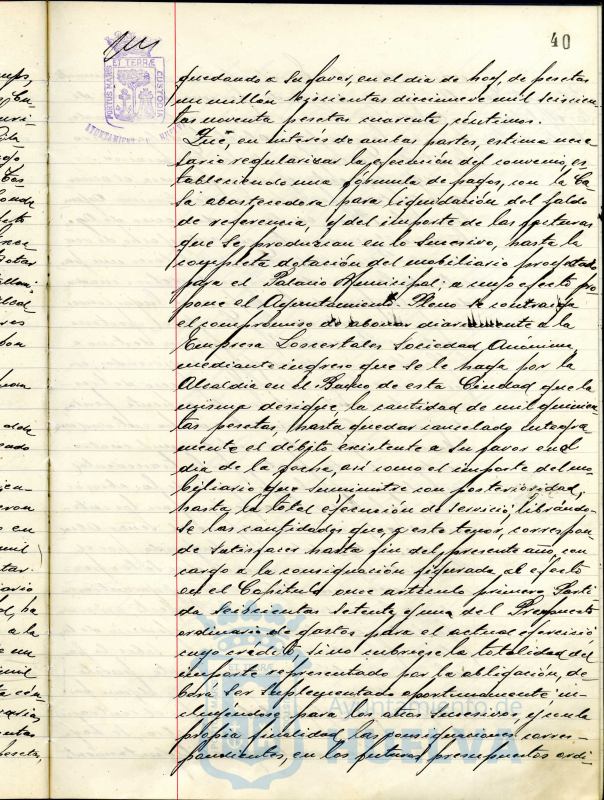 40
PORTUS MARIS ET TERRÆ CUSTODIA
AYUNTAMIENTO DE HUELVA
quedando a su favor, en el dia de hoy, de pesetas
un millón seiscientas diecinueve mil seiscien-
tas noventa pesetas cuarenta céntimos.
Que, en interés de ambas partes, estima nece-
sario regularizar la ejecución del convenio, es-
tableciendo una fórmula de pagos, con la Ca-
sa abastecedora para liquidación del saldo
de referencia, y del importe de las facturas
que se produzcan en lo sucesivo, hasta la
completa dotación del mobiliario proyectado
para el Palacio Municipal; a cuyo efecto pro-
pone el Ayuntamiento Pleno se contraiga
el compromiso de abonar diariamente a la
Empresa Loscertales Sociedad Anónima,
mediante ingreso que se le haga por la
Alcaldia en el Banco de esta Ciudad que la
misma designe, la cantidad de mil quinien-
tas pesetas, hasta quedar cancelado integra-
mente el débito existente a su favor en el
dia de la fecha, asi como el importe del mo-
biliario que suministre con posterioridad,
hasta la total ejecución de servicio, librándo-
se las cantidades que, a este tenor, correspon-
de satisfacer hasta fin del presente año, con
cargo a la consignación figurada al efecto
en el Capitulo once articulo primero Parti-
da seiscientas setenta y una del Presupuesto
ordinario de gastos para el actual ejercicio
cuyo crédito, si no cubriese la totalidad del
importe representado por la obligación, de-
berá ser suplementado oportunamente in-
cluyendose para los años sucesivos, y con la
propia finalidad, las consignaciones corres-
pondientes, en los futuros presupuestos ordi-
Ayuntamiento de
HUELVA